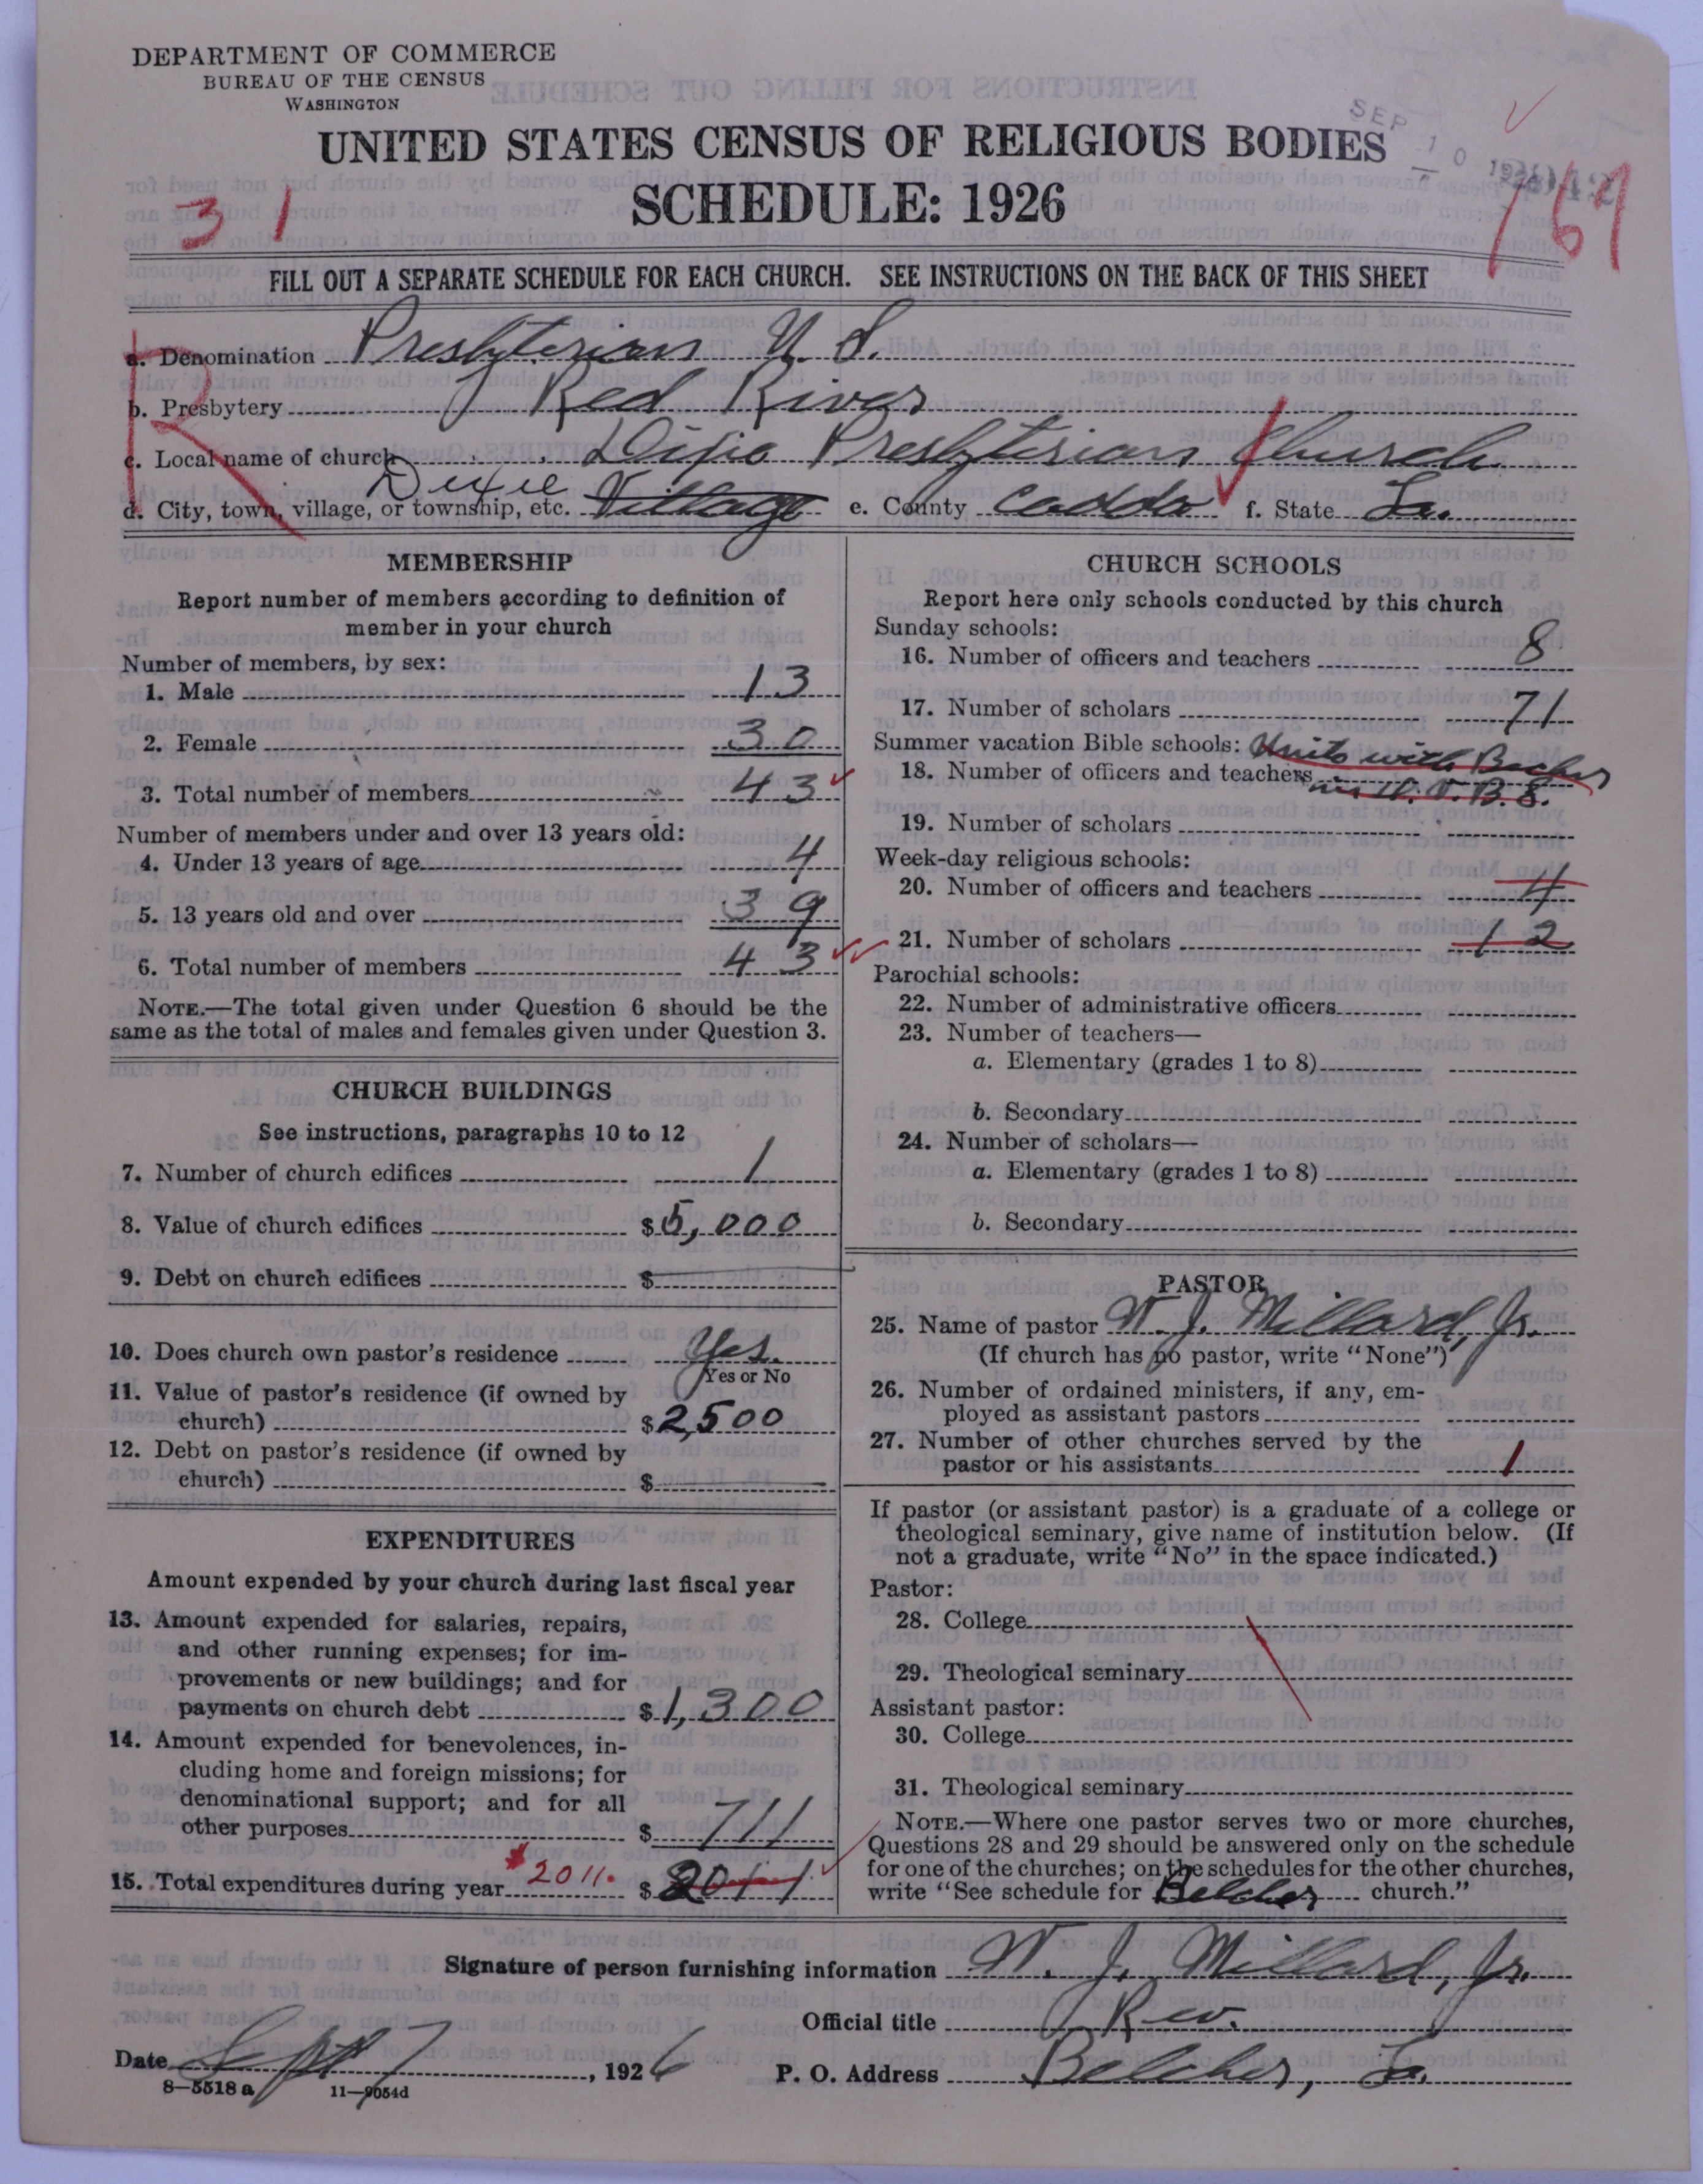 DEPARTMENT OF COMMERCE
BUREAU OF THE CENSUS
WASHINGTON
UNITED STATES CENSUS OF RELIGIOUS BODIES
SEP 10 1926
SCHEDULE: 1926
31
FILL OUT A SEPARATE SCHEDULE FOR EACH CHURCH. SEE INSTRUCTIONS ON THE BACK OF THIS SHEET
R
a. Denomination Presbyterian U. S.
b. Presbytery Red River
c. Local name of church Dixie Presbyterian Church
d. City, town, village, or township, etc. Dixie Village e. County Caddo f. State La.
MEMBERSHIP
Report number of members according to definition of
member in your church
Number of members, by sex:
1. Male 13
2. Female 30
3. Total number of members 43
Number of members under and over 13 years old:
4. Under 13 years of age 4
5. 13 years old and over 39
6. Total number of members 43
NOTE.—The total given under Question 6 should be the
same as the total of males and females given under Question 3.
CHURCH BUILDINGS
See instructions, paragraphs 10 to 12
7. Number of church edifices 1
8. Value of church edifices $5,000
9. Debt on church edifices $
10. Does church own pastor's residence Yes.
Yes or No
11. Value of pastor's residence (if owned by
church) $2,500
12. Debt on pastor's residence (if owned by
church) $
EXPENDITURES
Amount expended by your church during last fiscal year
13. Amount expended for salaries, repairs,
and other running expenses; for im-
provements or new buildings; and for
payments on church debt $1,300
14. Amount expended for benevolences, in-
cluding home and foreign missions; for
denominational support; and for all
other purposes $ 711
15. Total expenditures during year $2011. $ 2011
CHURCH SCHOOLS
Report here only schools conducted by this church
Sunday schools:
16. Number of officers and teachers 8
17. Number of scholars 71
Summer vacation Bible schools: Unite with Belcher
18. Number of officers and teachers in D. V. B. S.
19. Number of scholars
Week-day religious schools:
20. Number of officers and teachers 4
21. Number of scholars 12
Parochial schools:
22. Number of administrative officers
23. Number of teachers—
a. Elementary (grades 1 to 8)
b. Secondary
24. Number of scholars—
a. Elementary (grades 1 to 8)
b. Secondary
PASTOR
25. Name of pastor W. J. Millard, Jr.
(If church has no pastor, write "None")
26. Number of ordained ministers, if any, em-
ployed as assistant pastors
27. Number of other churches served by the
pastor or his assistants 1
If pastor (or assistant pastor) is a graduate of a college or
theological seminary, give name of institution below. (If
not a graduate, write "No" in the space indicated.)
Pastor:
28. College
29. Theological seminary
Assistant pastor:
30. College
31. Theological seminary
NOTE.—Where one pastor serves two or more churches,
Questions 28 and 29 should be answered only on the schedule
for one of the churches; on the schedules for the other churches,
write "See schedule for Belcher church."
Signature of person furnishing information W. J. Millard, Jr.
Official title Rev.
Date Sept 7, 1926 P. O. Address Belcher, La.
8—5518 a 11—9054d